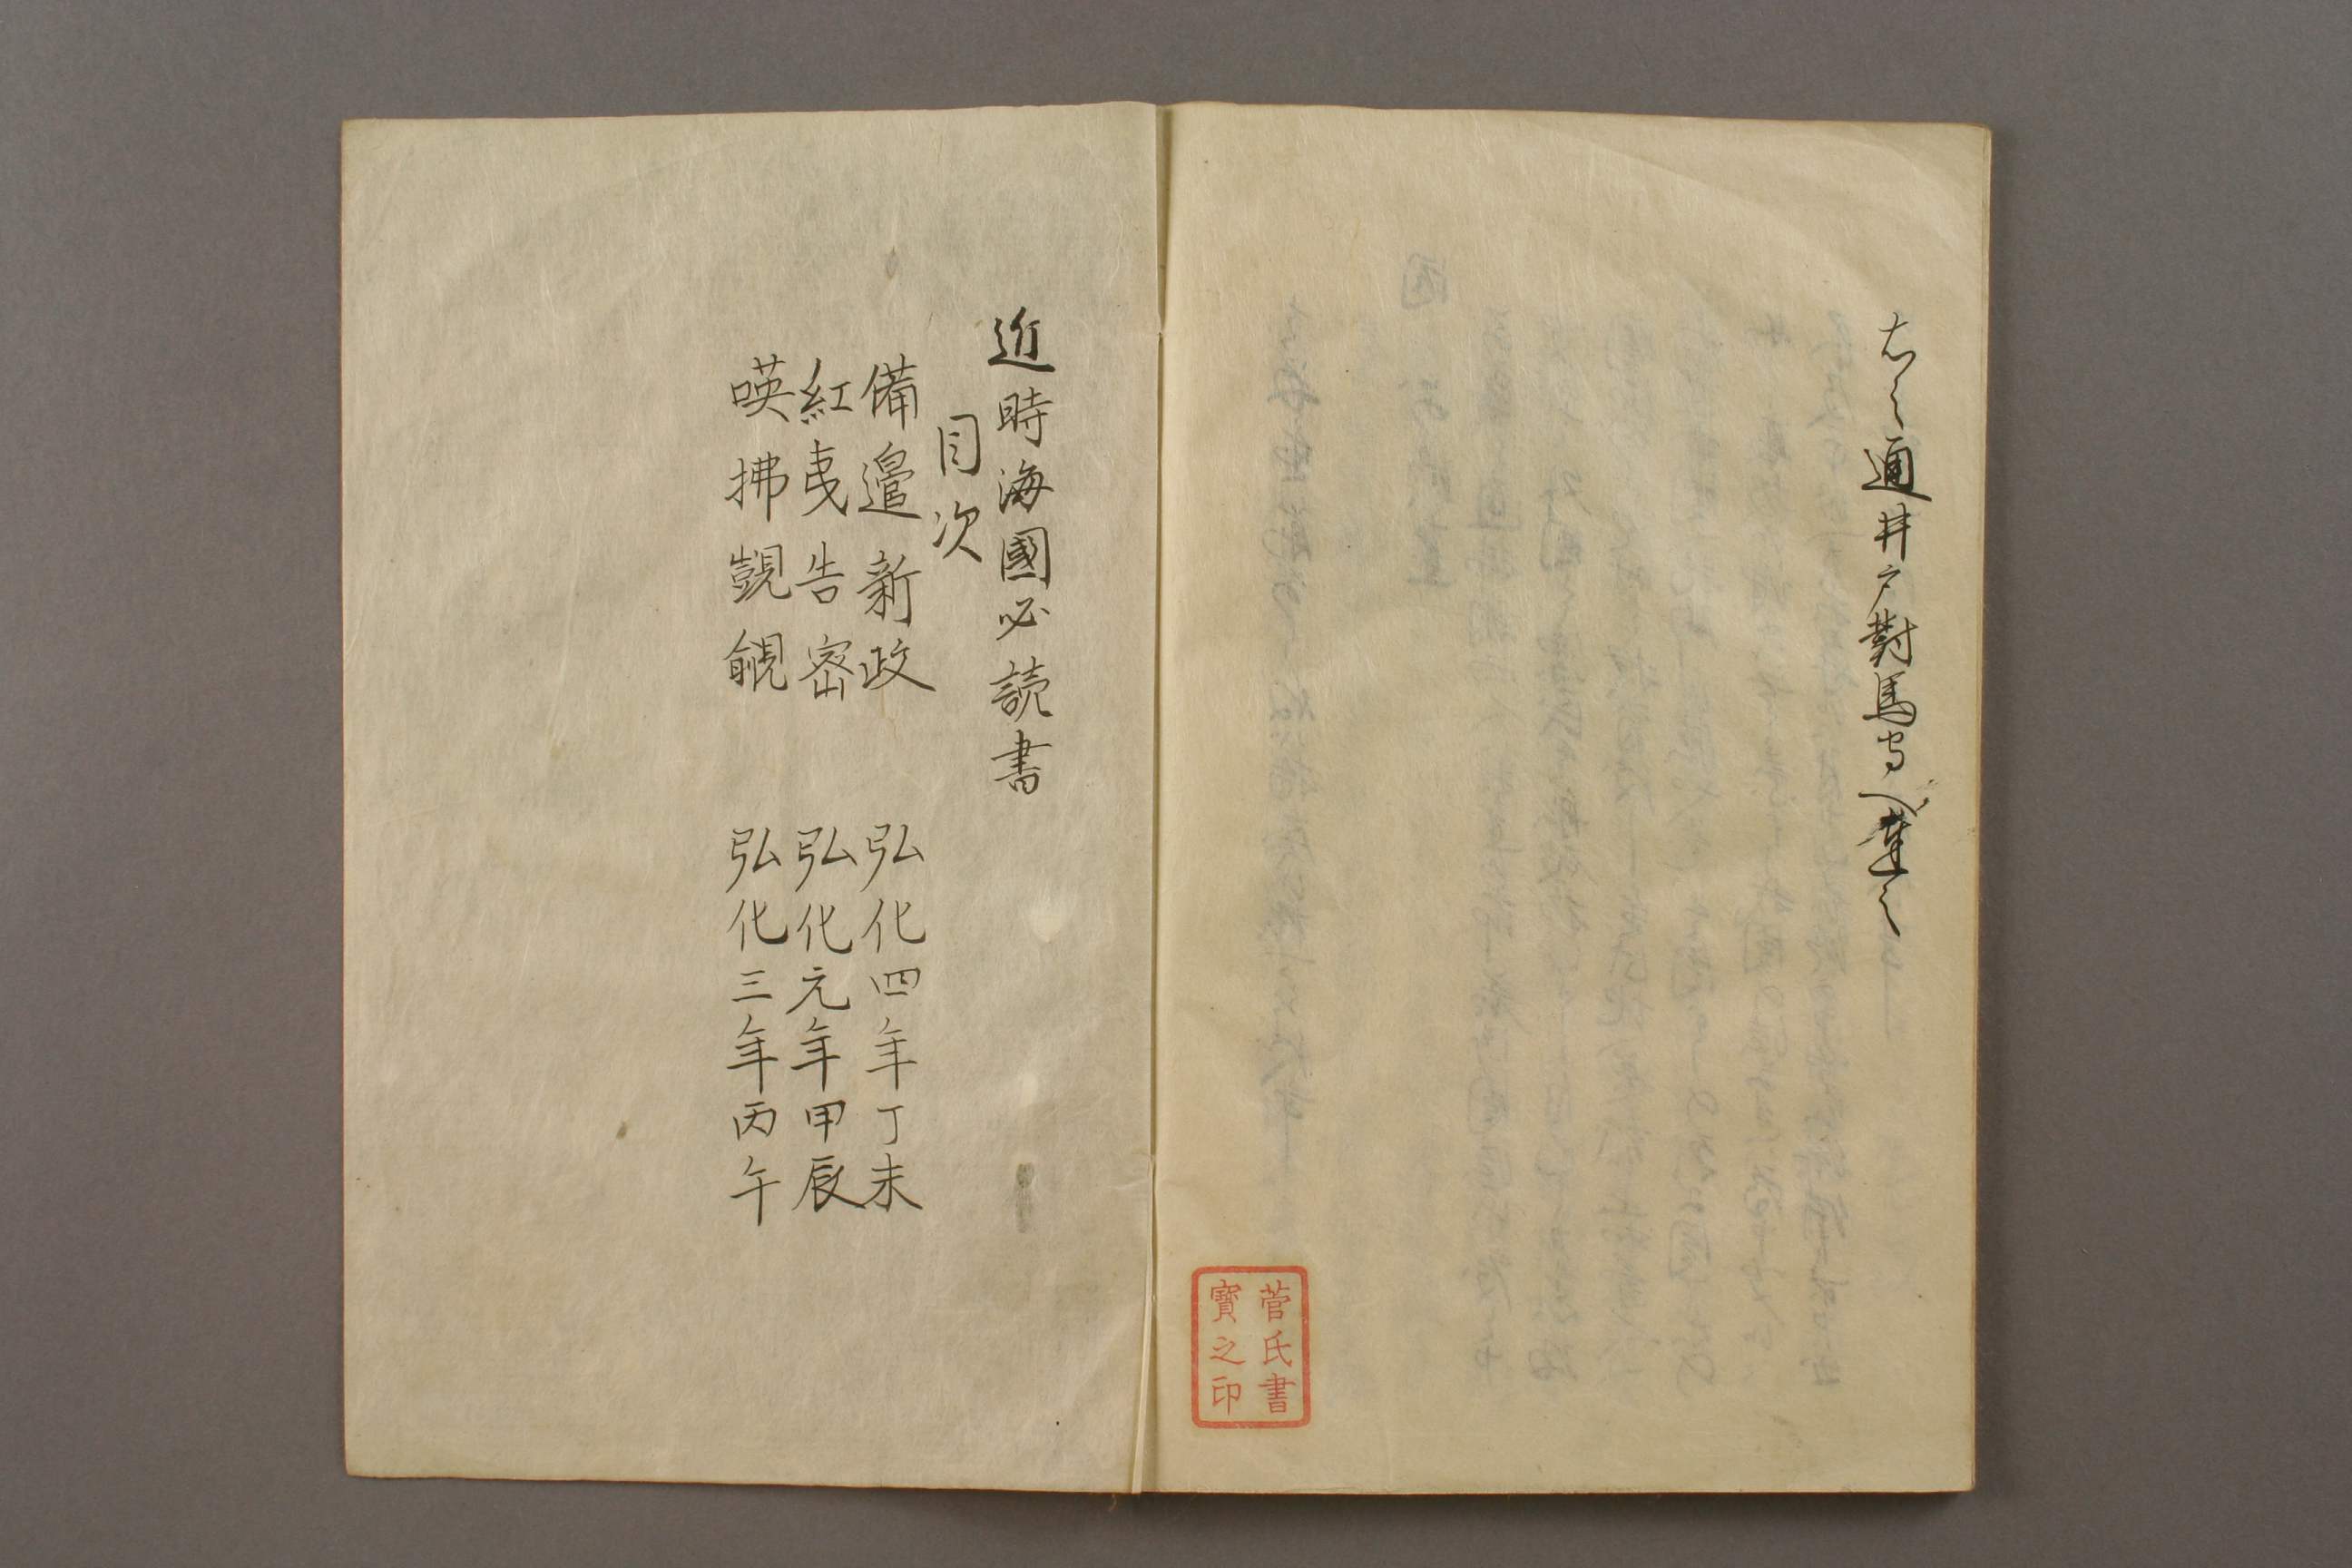 右之通井戸對馬守へ達之
菅氏書
寶之印
近時海國必読書
目次
備邉新政 弘化四年丁未
紅夷告密 弘化元年甲辰
暎拂覬覦 弘化三年丙午